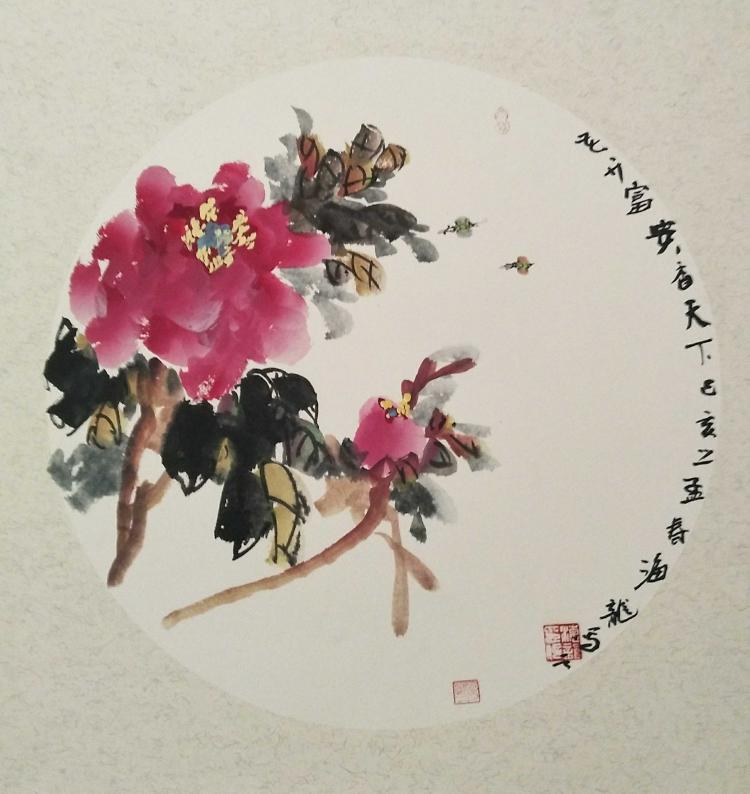 花开富贵香天下己亥之孟春海龙写之